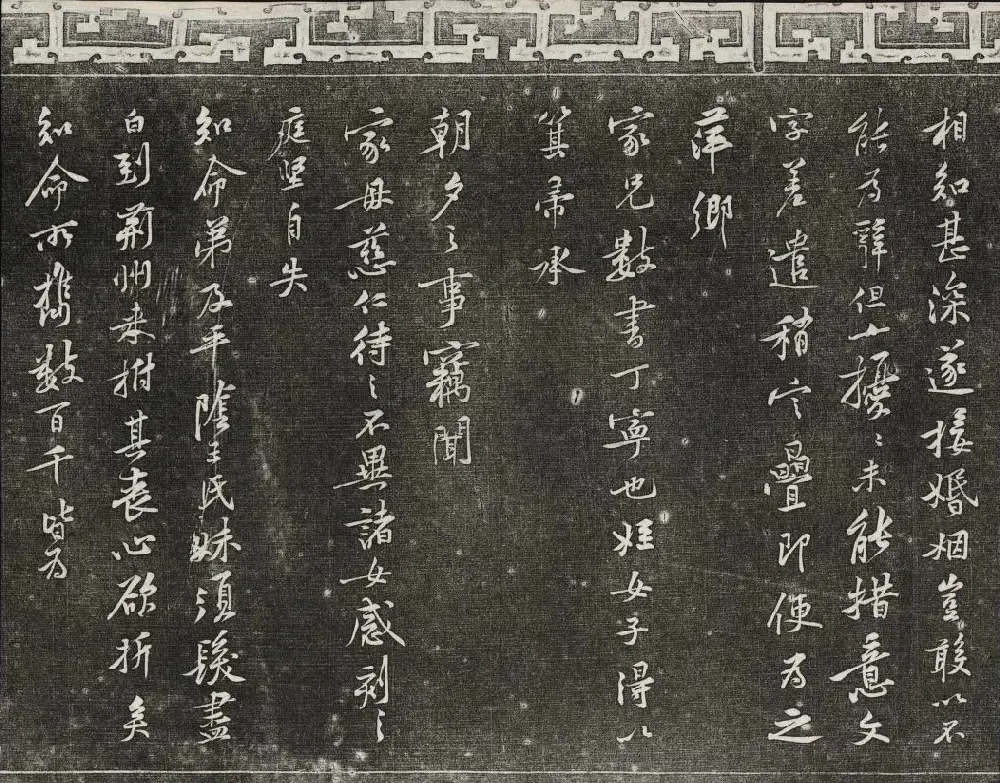 相知甚深遂接婚姻豈敢以不
能為辭但以擾〻未能措意文
字差遣稍定疊即便為之
萍鄉
家兄數書丁寧也姪女子得以
箕帚承
朝夕之事竊聞
家母慈仁待之不異諸女感刻之
庭堅自失
知命弟及平陰王氏妹須髮盡
白到荊州來拊其喪心欲折矣
知命所攜數百千皆為